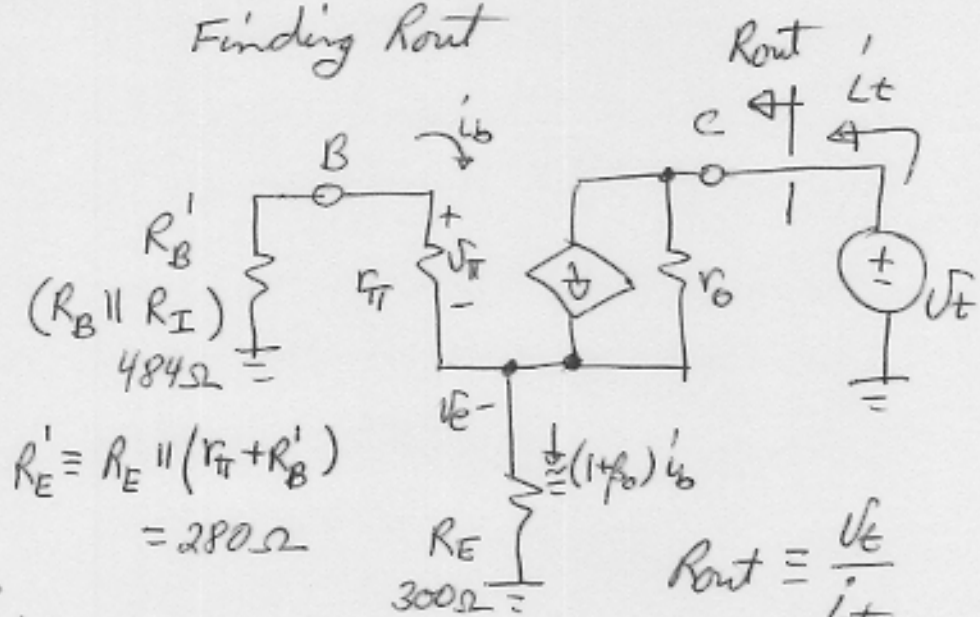 Finding Rout
Rout
it
C
B
ib
RB'
(RB || RI)
484Ω
rπ
+
vπ
-
ro
+
-
vt
ve-
RE' ≡ RE || (rπ + RB')
= 280Ω
(1+βo) ib
RE
300Ω
Rout ≡ vt
it